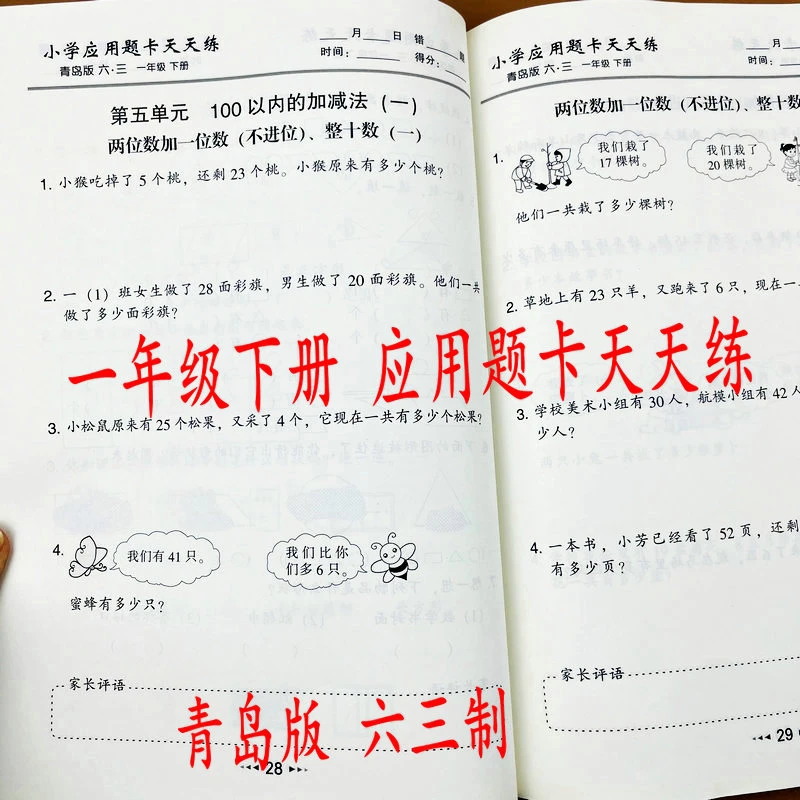 小学应用题卡天天练
青岛版 六·三 一年级 下册
___月___日 错___题
时间：____ 得分：____
第五单元 100以内的加减法（一）
两位数加一位数（不进位）、整十数（一）
1. 小猴吃掉了5个桃，还剩23个桃。小猴原来有多少个桃？
2. 一（1）班女生做了28面彩旗，男生做了20面彩旗。他们一共
做了多少面彩旗？
3. 小松鼠原来有25个松果，又采了4个，它现在一共有多少个松果？
4.
我们有41只。
我们比你
们多6只。
蜜蜂有多少只？
家长评语
28
小学应用题卡天天练
青岛版 六·三 一年级 下册
___月
时间：
两位数加一位数（不进位）、整十
1.
我们栽了
17棵树。
我们栽了
20棵树。
他们一共栽了多少棵树？
2. 草地上有23只羊，又跑来了6只，现在一
3. 学校美术小组有30人，航模小组有42人
少人？
4. 一本书，小芳已经看了52页，还剩
有多少页？
家长评语
29
一年级下册 应用题卡天天练
青岛版 六三制